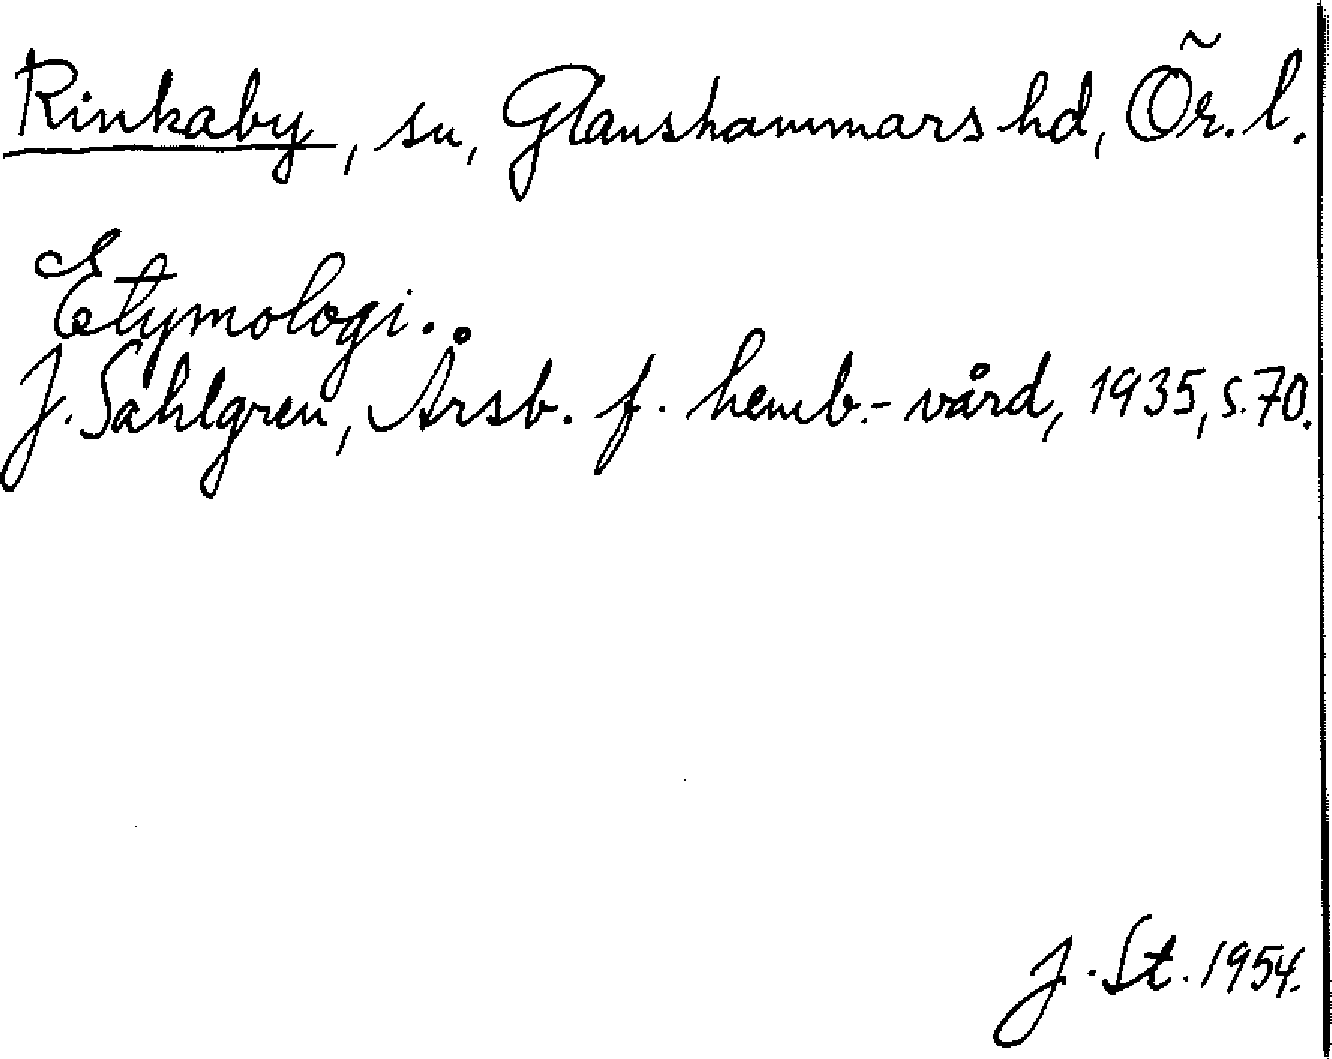 Rinkaby, sn, Glanshammars hd, Ör. l.
Etymologi.
J. Sahlgren, Årsb. f. hemb.-vård, 1935, s. 70.
J. St. 1954.